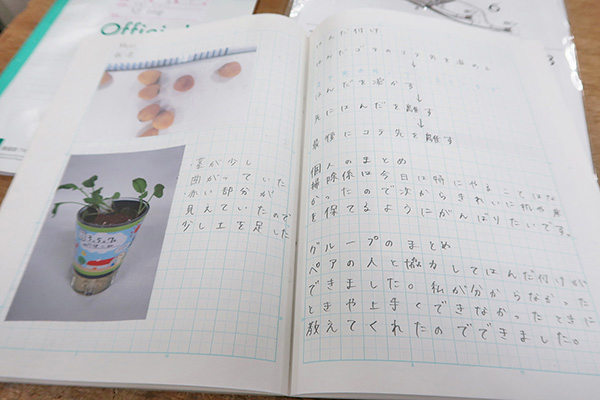 Offici
・茎が少し
曲がっていた
・赤い部分が
見えていたので
少し土を足した
はんだ付け
↓
はんだを溶かす
↓
先にはんだを離す
↓
最後にコテ先を離す
個人のまとめ
掃除係は今日は特にやることはな
かったので次からきれいに机や床
を保てるようにがんばりたいです。
グループのまとめ
ペアの人と協力してはんだ付けが
できました。私が分からなかった
ときや上手くできなかったときに
教えてくれたのでできました。
6
3